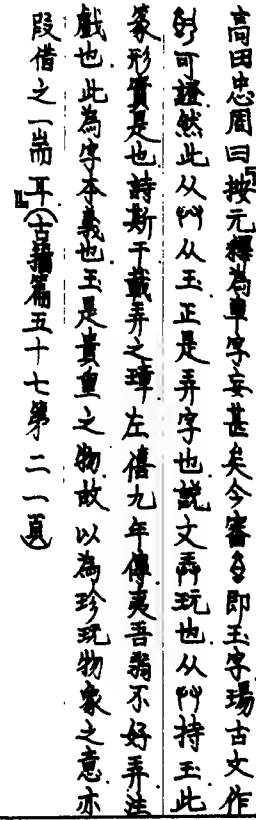 高田忠周曰按元釋為車字妄甚矣今審即玉字瑒古文作
可證然此从艸从玉正是弄字也說文弄玩也从艸持玉此
篆形實是也詩斯干載弄之璋左僖九年傳夷吾弱不好弄注
戲也此為字本義也玉是貴重之物故以為珍玩物象之意亦
段借之一耑耳(古籀篇五十七第二一頁)